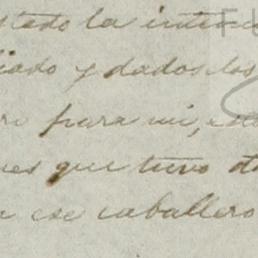 stado la inten
iado y dados los
para mi, est
es que tuvo d
ese caballero